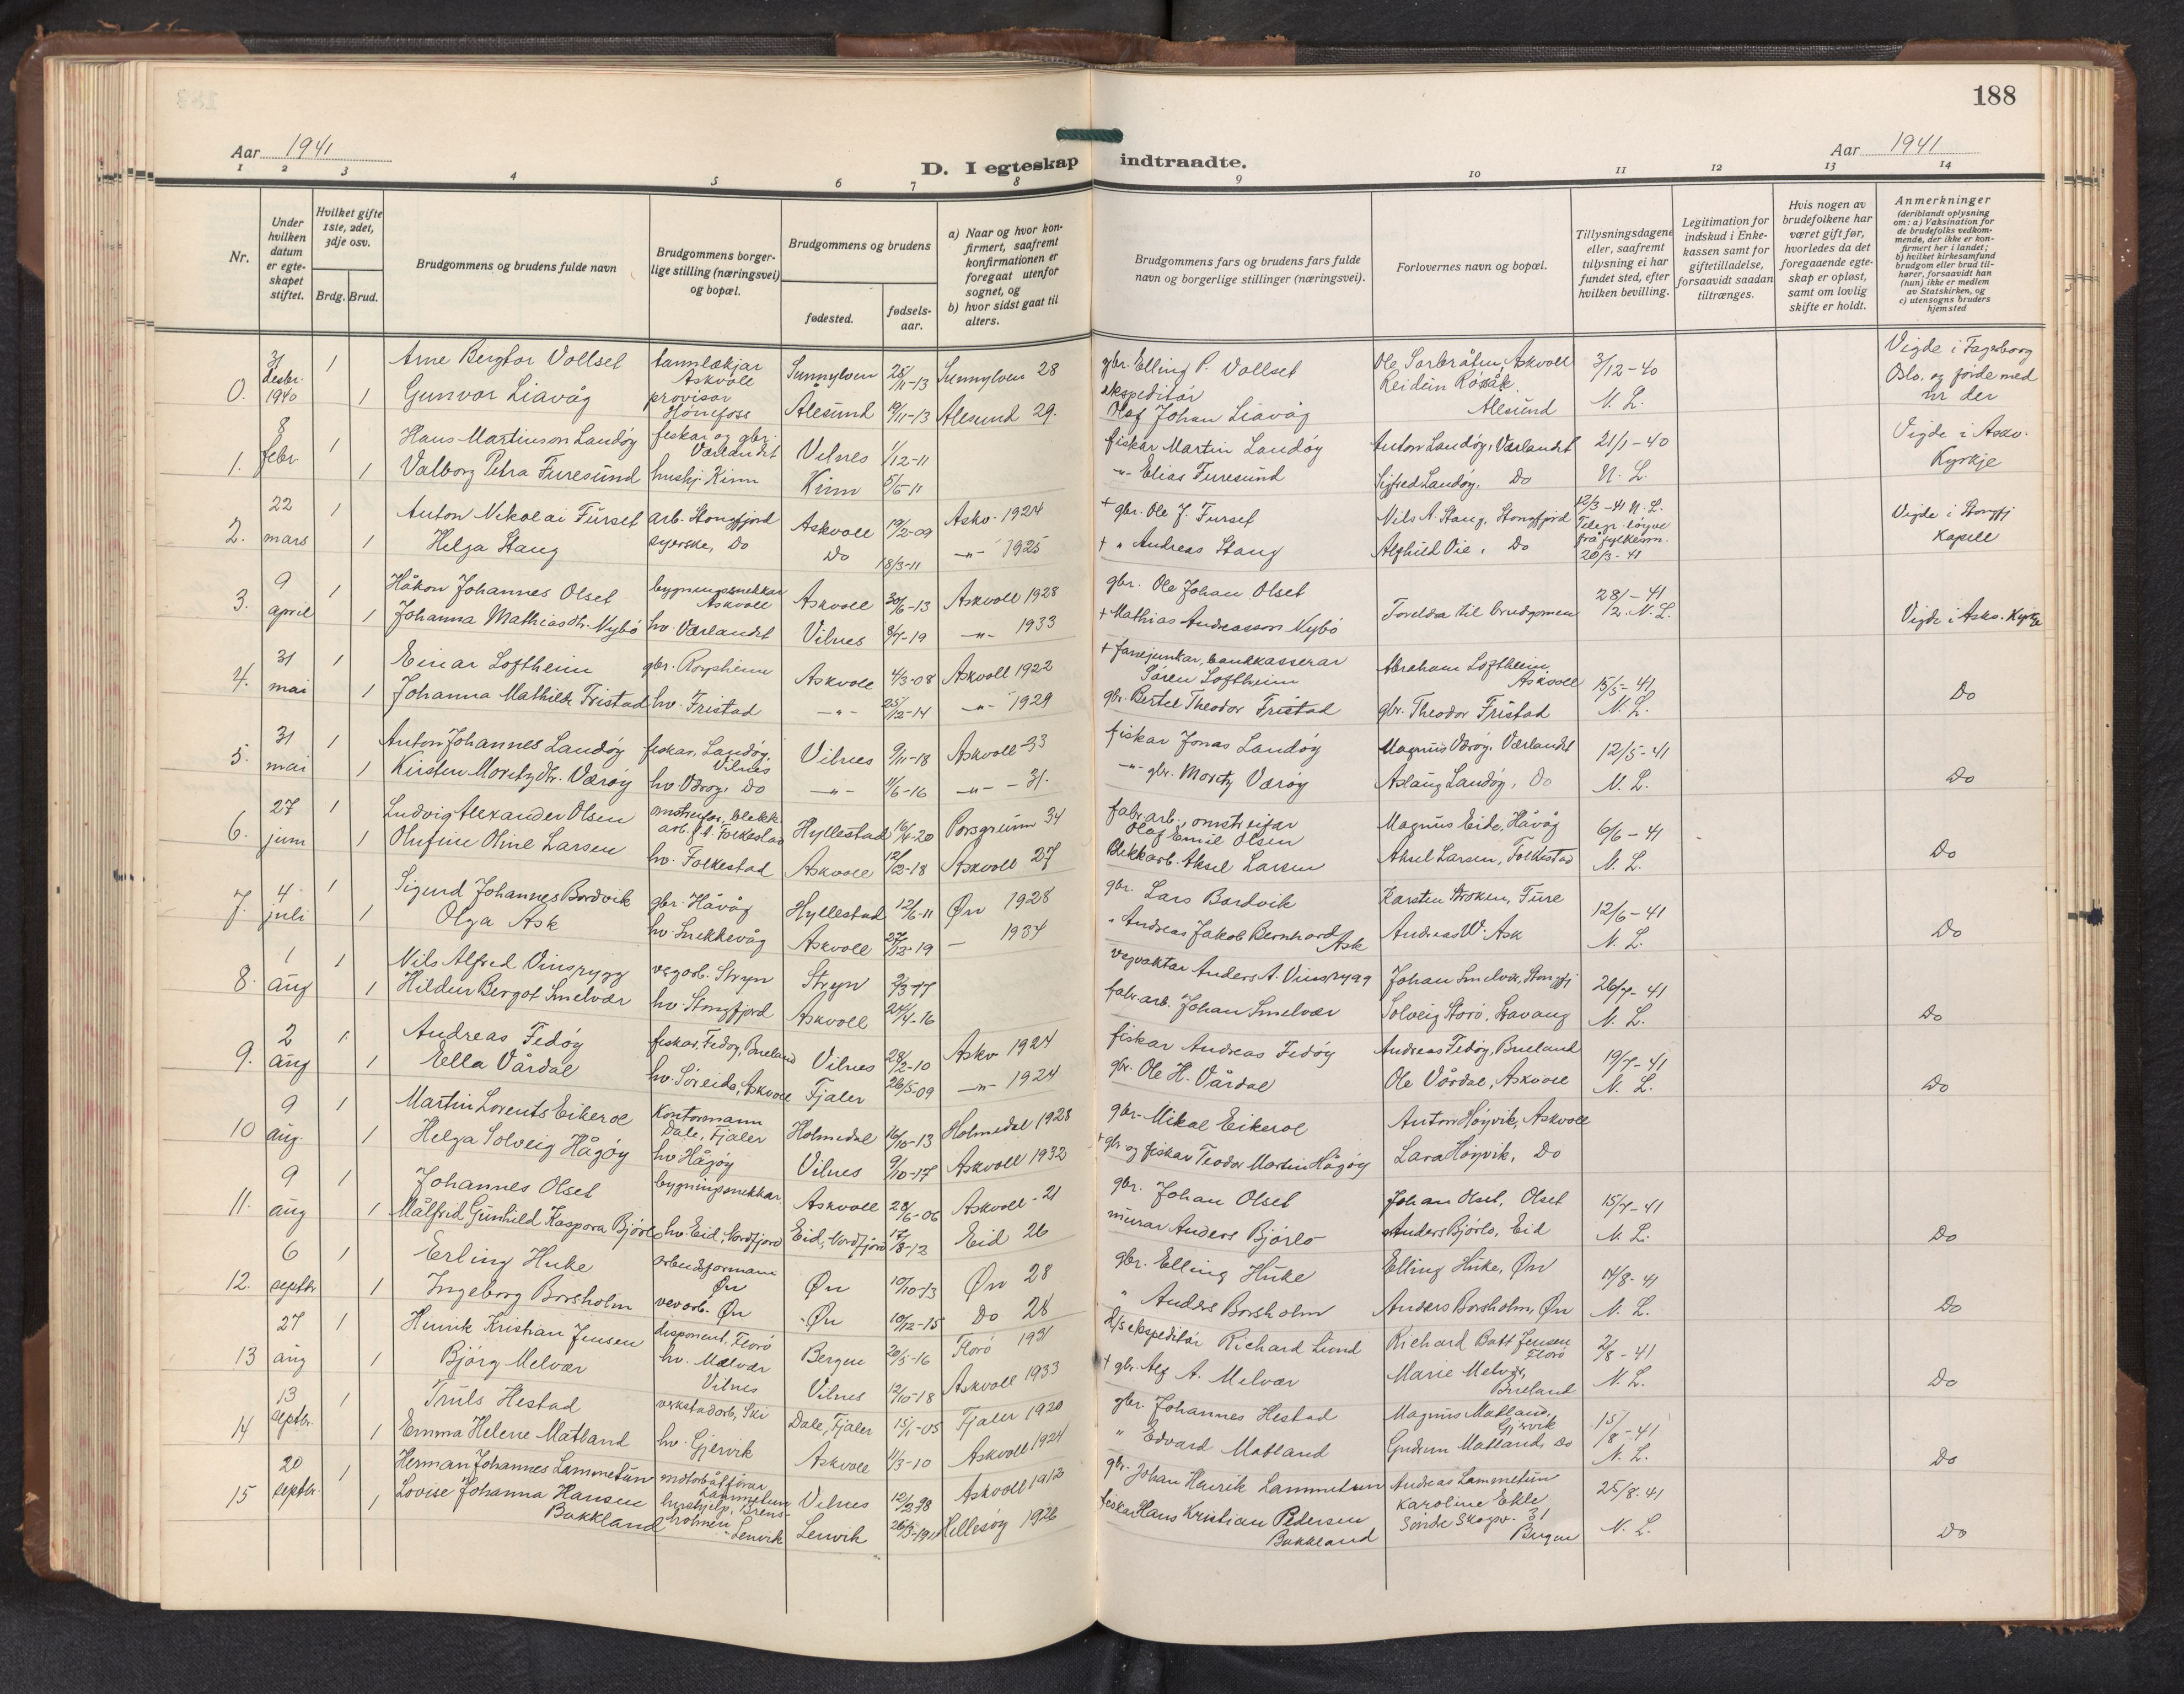 188
Aar 1941
D. I egteskap indtraadte.
Aar 1941
1 2 3 4 5 6 7 8 9 10 11 12 13 14
Nr.
Under hvilken datum er egteskapet stiftet.
Hvilket gifte 1ste, 2det, 3dje osv.
Brdg. Brud.
Brudgommens og brudens fulde navn
Brudgommens borgerlige stilling (næringsvei) og bopæl.
Brudgommens og brudens
fødested.
fødselsaar.
a) Naar og hvor konfirmert, saafremt konfirmationen er foregaat utenfor sognet, og
b) hvor sidst gaat til alters.
Brudgommens fars og brudens fars fulde navn og borgerlige stillinger (næringsvei).
Forlovernes navn og bopæl.
Tillysningsdagene eller, saafremt tillysning ei har fundet sted, efter hvilken bevilling.
Legitimation for indskud i Enkekassen samt for giftetilladelse, forsaavidt saadan tiltrænges.
Hvis nogen av brudefolkene har været gift før, hvorledes da det foregaaende egteskap er opløst, samt om lovlig skifte er holdt.
Anmerkninger (deriblandt oplysning om: a) Vaksination for de brudefolks vedkommende, der ikke er konfirmert her i landet; b) hvilket kirkesamfund brudgom eller brud tilhører, forsaavidt han (hun) ikke er medlem av Statskirken, og c) utensogns bruders hjemsted
0. 31 desbr. 1940 1 Arne Bergtor Vollset tannlækjar Askvoll Sunnylven 25/11-13 Sunnylven 28 gbr. Elling P. Vollset Ole Sorbråten, Askvoll 3/12-40 Vigde i Fagerborg Oslo, og förde med nr der
1 Gunvor Liavåg provisor Hönefoss Ålesund 19/11-13 Ålesund 29. ekspeditör Olaf Johan Liavåg Reidun Ålesund N. L.
1. 8 febr 1 Hans Martinson Landöy fiskar og gbr. Værlandet Vilnes 1/12-11 fiskar Martin Landöy Anton Landöy, Værlandet 21/1-40 Vigde i Askv. Kyrkje
1 Valborg Petra Furesund hushj. Kinn Kinn 5/5-11 -"- Elias Furesund Sigfred Landöy, Do N. L.
2. 22 mars 1 Anton Nikolai Furset arb. Stongfjord Askvoll 19/2-09 Askv. 1924 + gbr. Ole J. Furset Nils A. Stang, Stongfjord 12/3-41 N. L. Vigde i Stongfj Kapell
1 Helga Stang syerske, Do Do 18/3-11 -"- 1925 + " Andreas Stang Alghild Vie, Do Telegr. löyve frå fylkesm. 20/3-41
3. 9 april 1 Håkon Johannes Olset bygningssnekkar Askvoll Askvoll 30/6-13 Askvoll 1928 gbr. Ole Johan Olset Foreldra til brudgomen 28/1-41 Vigde i Askv. Kyrkje
1 Johanna Mathiasdtr. Nybö hv. Værlandet Vilnes 8/7-19 -"- 1933 + Mathias Andreasson Nybö N. L.
4. 31 mai 1 Einar Loftheim gbr. Askvoll 4/3-08 Askvoll 1922 + fanejunkar, bankkasserar Sören Loftheim Abraham Loftheim Askvoll 15/5-41 Do
1 Johanna Mathilde Fristad hv. Fristad -"- 25/12-14 -"- 1929 gbr. Bertel Theodor Fristad gbr. Theodor Fristad N. L.
5. 31 mai 1 Anton Johannes Landöy fiskar, Landöy Vilnes Vilnes 9/11-18 Askvoll 33 fiskar Jonas Landöy Magnus Værøy, Værlandet 12/5-41 Do
1 Kirsten Moritzdtr. Værøy hv. Værøy, Do -"- 11/6-16 -"- - 31. -"- gbr. Moritz Værøy Aslaug Landöy, Do N. L.
6. 27 juni 1 Ludvig Alexander Olsen omstreifar, blekkarb. Folkestad Hyllestad 16/4-20 Porsgrunn 34 fabr.arb., omstreifar Olaf Emil Olsen Magnus Eide, Håvåg 6/6-41 Do
1 Olufine Oline Larsen hv. Folkestad Askvoll 12/2-18 Askvoll 27 Blekkarb. Aksel Larsen Aksel Larsen, Folkestad N. L.
7. 4 juli 1 Sigurd Johannes Bordvik gbr. Håvåg Hyllestad 12/6-11 Øn 1928 gbr. Lars Bordvik Karsten Stoken, Fure 12/6-41 Do
1 Olga Ask hv. Snekkevåg Askvoll 27/12-19 - 1934 " Andreas Jakob Bernhard Ask Andreas W. Ask N. L.
8. 1 aug 1 Nils Alfred Vinsrygg vegarb. Stryn Stryn 9/3-17 vegvaktar Anders A. Vinsrygg Johan Smelvær, Stongfj 26/7-41 Do
1 Hildur Bergot Smelvær hv. Stongfjord Askvoll 24/4-16 fabr.arb. Johan Smelvær Solveig Storö, Stavang N. L.
9. 2 aug 1 Andreas Fedöy fiskar, Fedöy, Bueland Vilnes 28/2-10 Askv 1924 fiskar Andreas Fedöy Andreas Fedöy, Bueland 19/7-41 Do
1 Ella Vårdal hv. Söreide, Askvoll Fjaler 26/5-09 -"- 1924 gbr. Ole H. Vårdal Ole Vårdal, Askvoll N. L.
10 9 aug. 1 Martin Lorents Eikerol Kontormann Dale, Fjaler Holmedal 16/10-13 Holmedal 1928 gbr. Mikal Eikerol Anton Höyvik, Askvoll
1 Helga Solveig Hågöy hv Hågöy Vilnes 9/10-17 Askvoll 1932 + gbr. og fiskar Teodor Martin Hågöy Lara Höyvik, Do
11. 9 aug 1 Johannes Olset bygningssnekkar Askvoll 28/6-06 Askvoll - 21 gbr. Johan Olset Johan Olset, Olset 15/7-41 Do
1 Målfrid Gunhild Kaspora Björlo hv. Eid, Nordfjord Eid, Nordfjord 17/8-12 Eid 26 murar Anders Björlo Anders Björlo, Eid N. L.
12. 6 septbr 1 Erling Huke arbeidsformann Øn Øn 10/10-13 Øn 28 gbr. Elling Huke Elling Huke, Øn 14/8-41 Do
1 Ingeborg Borsholm vevarb. Øn Øn 10/12-15 Do 28 " Anders Borsholm Anders Borsholm, Øn N. L.
13 27 aug 1 Henrik Kristian Jensen disponent, Florö Bergen 20/5-16 Florö 1931 d/s ekspeditör Richard Lund Richard Batt Jensen Florö 2/8-41 Do
1 Björg Melvær hv. Melvær Vilnes Vilnes 12/10-18 Askvoll 1933 + gbr. Alf A. Melvær Marie Melvær, Bueland N. L.
14 13 septbr. 1 Truls Hestad verkstadarb, Ski Dale, Fjaler 15/1-05 Fjaler 1920 gbr. Johannes Hestad Magnus Matland, Gjervik 15/8-41 Do
1 Emma Helene Matland hv. Gjervik Askvoll 11/3-10 Askvoll 1924 " Edvard Matland Gudrun Matland, Do N. L.
15 20 septbr. 1 Herman Johannes Lammetun motorbåtförar Lammetun Vilnes 12/2-98 Askvoll 1912 gbr. Johan Henrik Lammetun Andreas Lammetun 25/8-41 Do
1 Lovise Johanna Hansen Bakkland hushjelp, Brensholmen, Lenvik Lenvik 26/3-1911 Hellesöy 1926 fiskar Hans Kristian Pedersen Bakkland Karoline Ekle Söndre Skogv. 31 Bergen N. L.